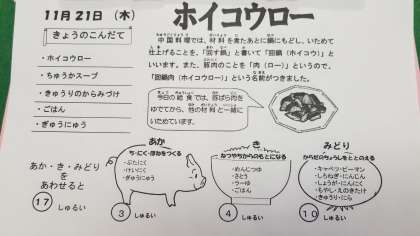 11月21日（木）
ホイコウロー
きょうのこんだて
・ホイコウロー
・ちゅうかスープ
・きゅうりのからみづけ
・ごはん
・ぎゅうにゅう
中国料理では、材料を煮たあとに鍋にもどし、いためて
仕上げることを、「回す鍋」と書いて「回鍋（ホイコウ）」と
いいます。また、豚肉のことを「肉（ロー）」というので、
「回鍋肉（ホイコウロー）」という名前がつきました。
今日の給食では、豚ばら肉を
ゆでてから、他の材料と一緒に
いためています。
あか・き・みどり
を
あわせると
17 しゅるい
あか
ち・にく・ほねをつくる
・ぶたにく
・けいにく
・ぎゅうにゅう
3 しゅるい
き
ねつやちからのもとになる
・めんじつゆ
・さとう
・らーゆ
・ごはん
4 しゅるい
みどり
からだのちょうしをととのえる
・キャベツ・ピーマン
・しろねぎ・にんじん
・しょうが・にんにく
・もやし・えのきたけ
・きゅうり・にら
10 しゅるい